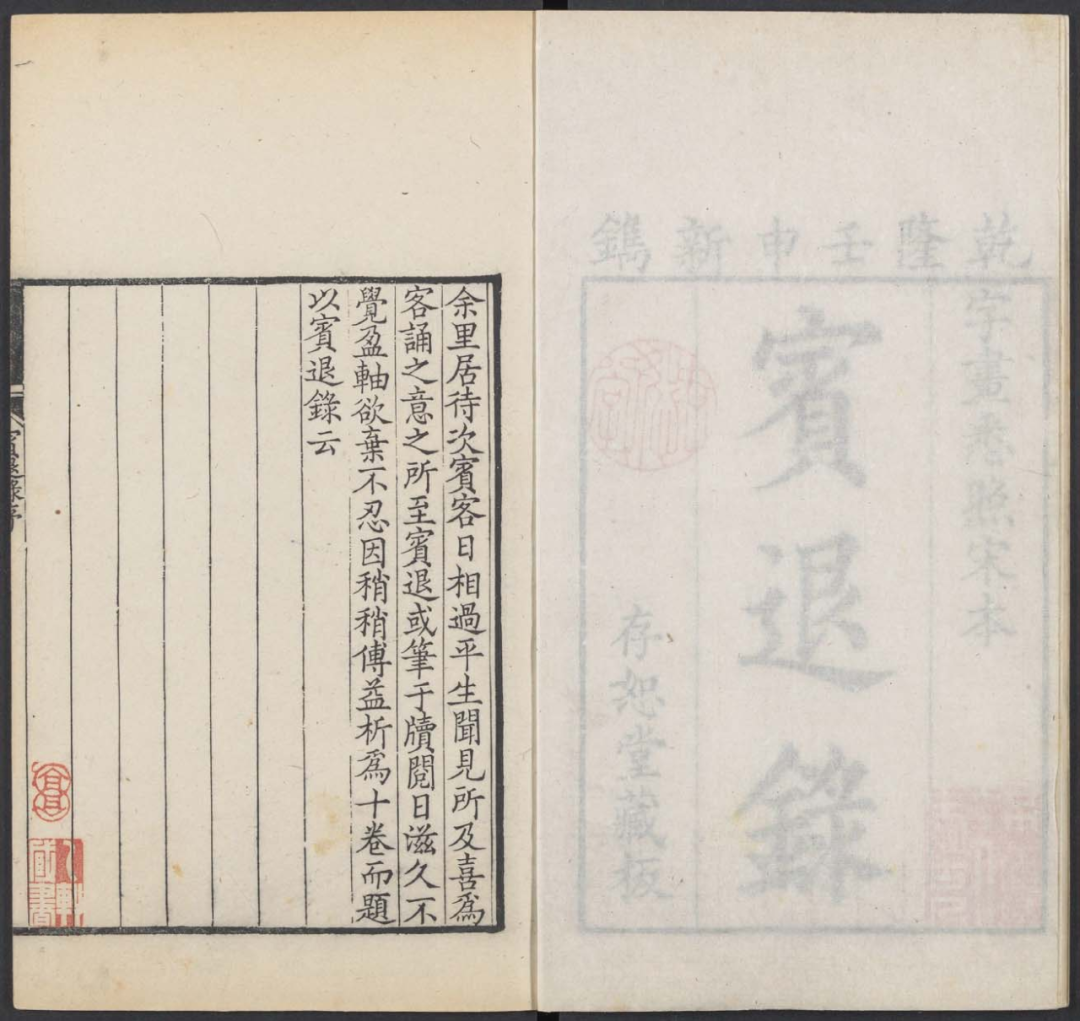 乾隆壬申新鐫
字畫悉照宋本
賓退錄
存恕堂藏板
余里居待次賓客日相過平生聞見所及喜爲
客誦之意之所至賓退或筆于牘閱日滋久不
覺盈軸欲棄不忍因稍稍傅益析爲十卷而題
以賓退錄云
賓退錄序